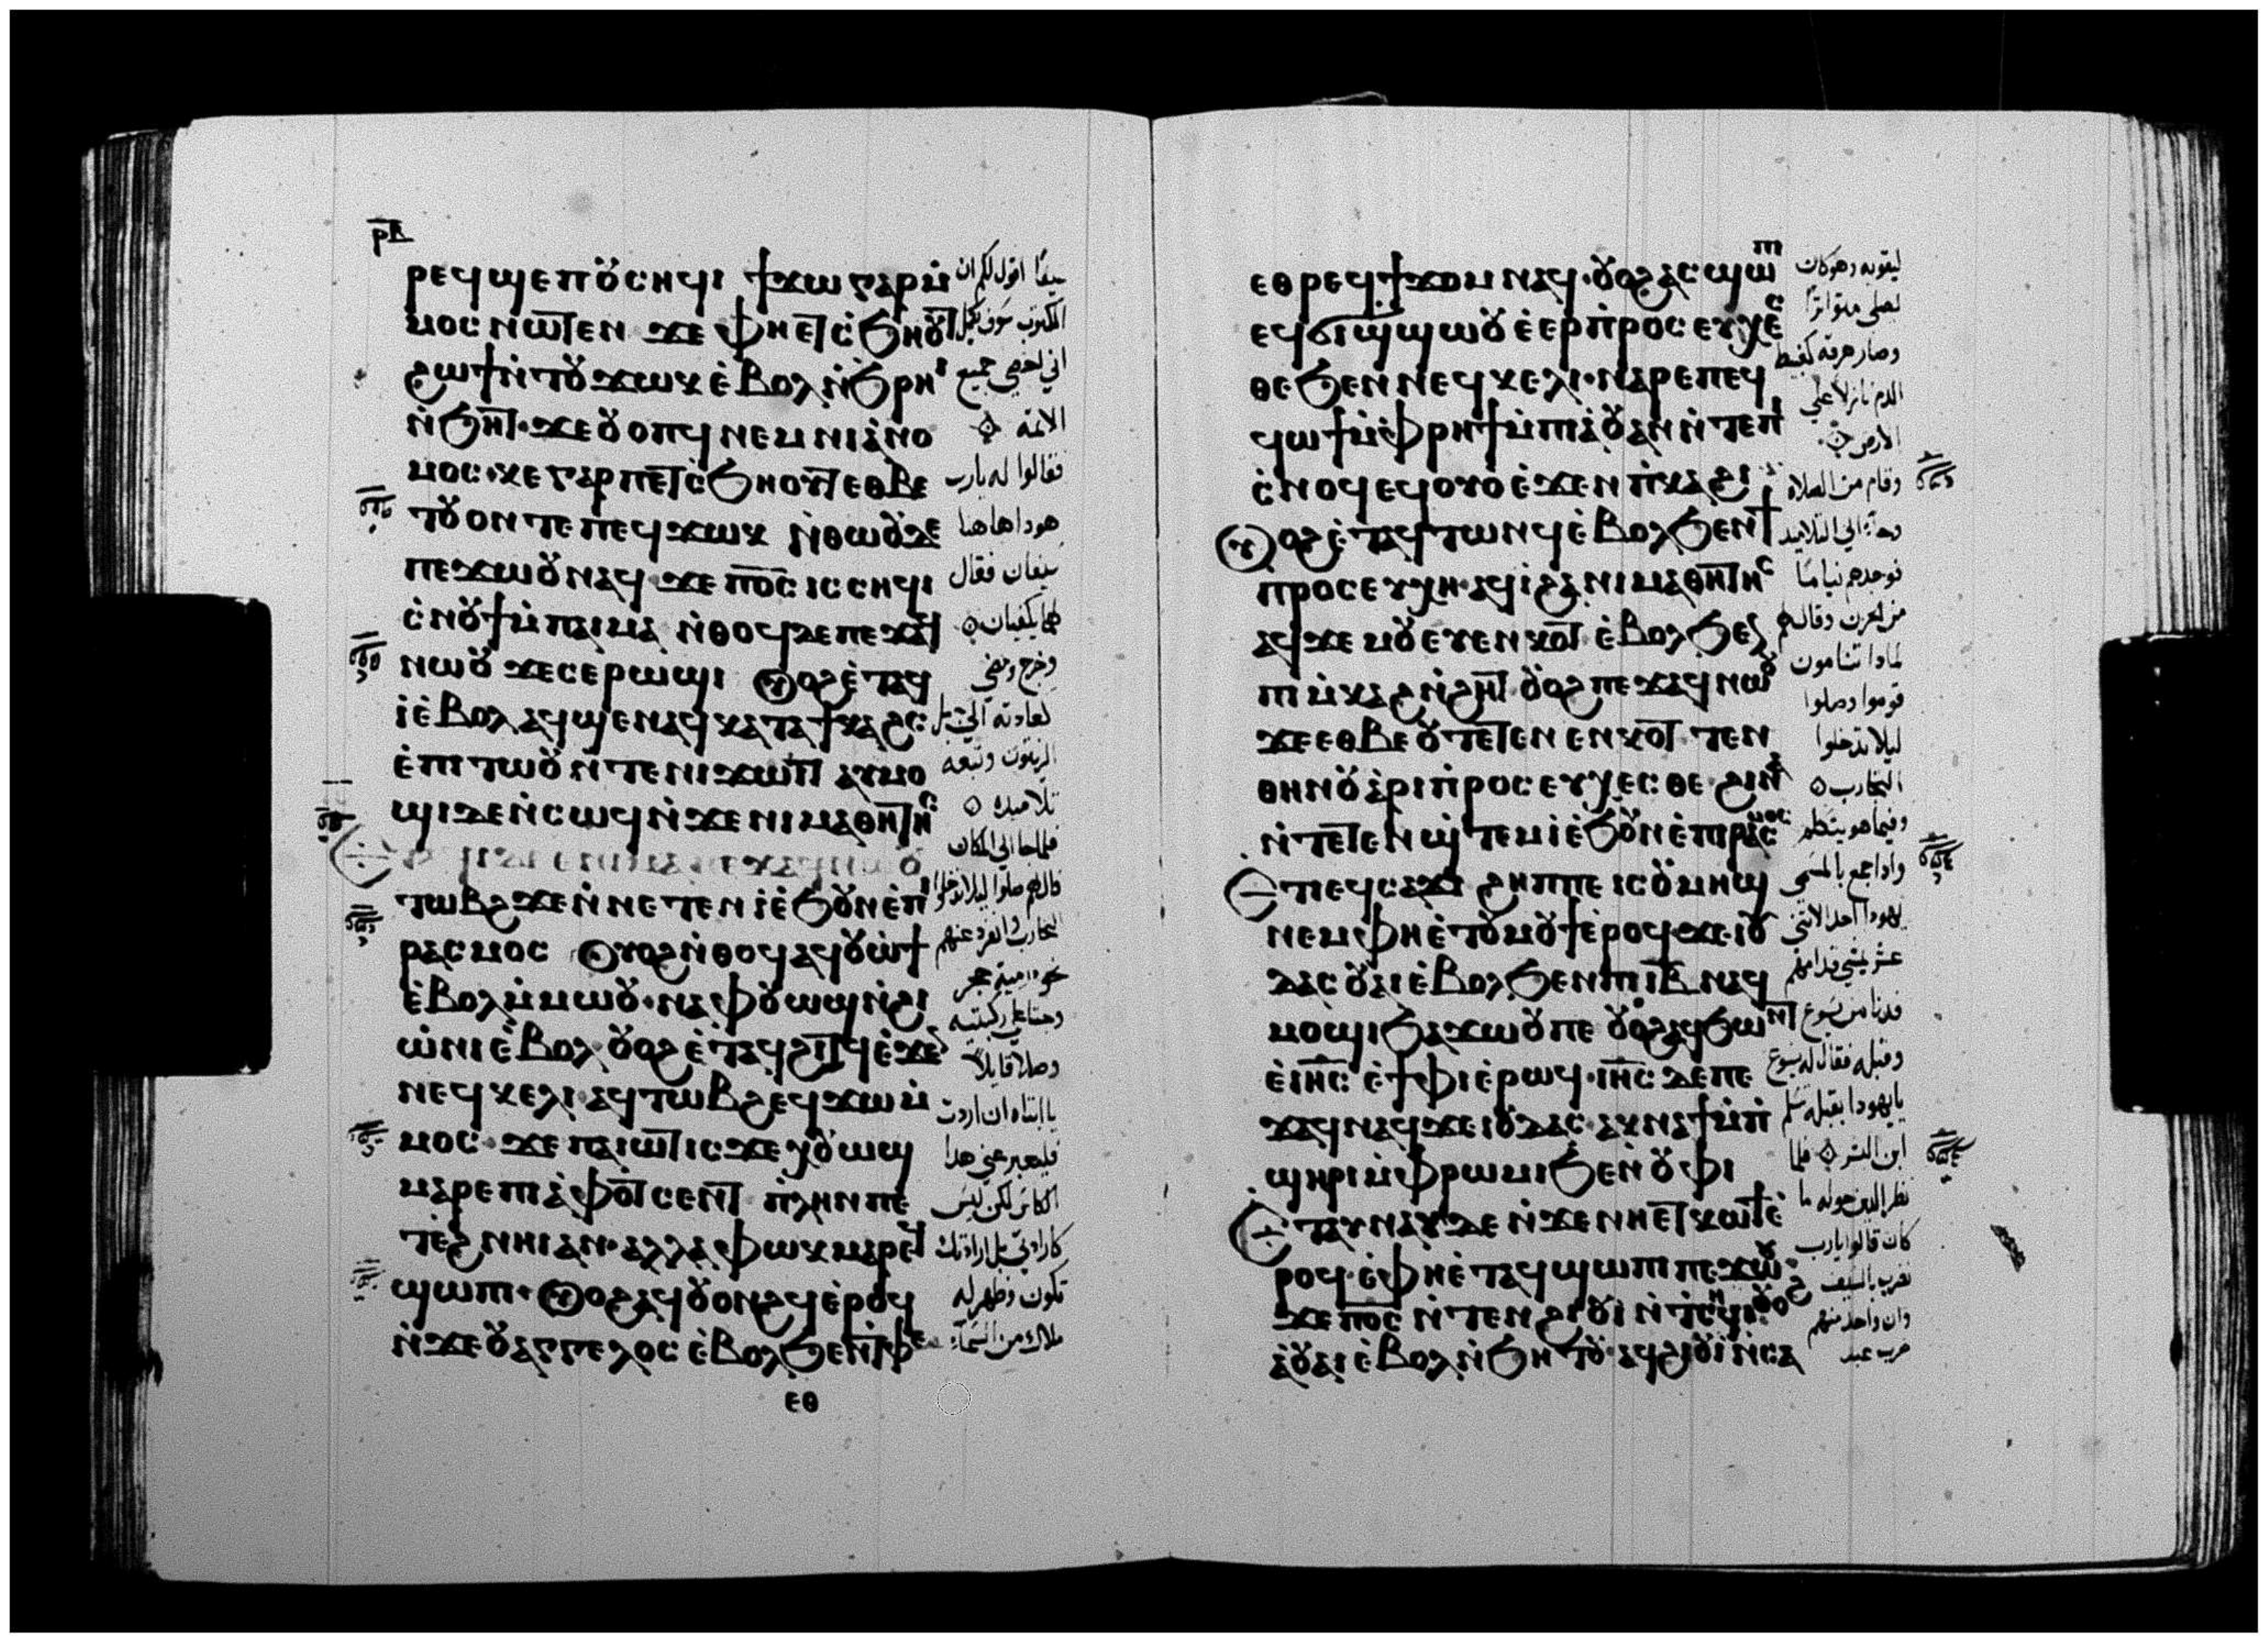 ⲣⲃ
ⲣⲉϥϣⲉⲡⲟⲩⲥⲏϥⲓ ϯϫⲱⲅⲁⲣⲙ̇
ⲙⲟⲥ ⲛⲱⲧⲉⲛ ϫⲉ ⲫⲏⲉⲧⲥ̇ϧⲏⲟⲩⲧ
ϩⲱϯⲛ̇ⲧⲟⲩϫⲱⲕ ⲉ̇ⲃⲟⲗ ⲛ̇ϧⲣⲏⲓ
ⲛ̇ϧⲏⲧ· ϫⲉⲟⲩⲟⲡϥ ⲛⲉⲙ ⲛⲓⲁ̇ⲛⲟ
ⲙⲟⲥ·ⲕⲉⲅⲁⲣ ⲡⲉⲧⲥ̇ϧⲏⲟⲩⲧ ⲉⲑⲃⲉ
ⲧⲟⲩⲟⲛⲧⲉⲡⲉϥϫⲱⲕ ⲛ̇ⲑⲱⲟⲩⲇⲉ
ⲡⲉϫⲱⲟⲩ ⲛⲁϥ ϫⲉ ⲡⲟ̅ⲥ̅ ⲓⲥ ⲥⲏϥⲓ
ⲥ̇ⲛⲟⲩϯ ⲙ̇ⲡⲁⲓⲙⲁ ⲛ̇ⲑⲟϥⲇⲉ ⲡⲉϫⲁϥ
ⲛⲱⲟⲩ ϫⲉⲥⲉⲣⲱϣⲓ ⲟⲩⲟϩ ⲉ̇ⲧⲁϥ
ⲓ̇ⲉ̇ⲃⲟⲗ ⲁϥϣⲉⲛⲁϥ ⲕⲁⲧⲁϯⲕⲁϩⲥ
ⲉ̇ⲡⲓⲧⲱⲟⲩ ⲛ̇ⲧⲉⲛⲓϫⲱⲓⲧ ⲁⲩⲙⲟ
ϣⲓⲇⲉⲛ̇ⲥⲱϥ ⲛ̇ϫⲉⲛⲓⲙⲁⲑⲏⲧⲏⲥ
ⲧⲱⲃϩ ϫⲉⲛ̇ⲛⲉⲧⲉⲛⲓ̇ⲉ̇ϧⲟⲩⲛ ⲉ̇ⲡⲓ
ⲣⲁⲥⲙⲟⲥ ⲟⲩⲟϩ ⲛ̇ⲑⲟϥ ⲁϥⲟⲩⲱϯ
ⲉ̇ⲃⲟⲗ ⲙ̇ⲙⲱⲟⲩ·ⲛⲁⲫⲟⲩⲱϣ ⲛ̇ϩⲓ
ⲱ̇ⲛⲓ ⲉ̇ⲃⲟⲗ ⲟⲩⲟϩ ⲉ̇ⲧⲁϥϩⲓⲧϥ ⲉ̇ϫⲉⲛ
ⲛⲉϥⲕⲉⲗⲓ· ⲁϥⲧⲱⲃϩ ⲉϥϫⲱ ⲙ̇
ⲙⲟⲥ· ϫⲉ ⲡⲁⲓⲱⲧ ⲓⲥϫⲉ ⲭⲟⲩⲱϣ
ⲙⲁⲣⲉⲡⲓⲁ̇ⲫⲟⲧ ⲥⲉⲛⲧ ⲡ̇ⲗⲏⲛ ⲡⲉ
ⲧⲉϩⲛⲏⲓ ⲁⲛ· ⲁⲗⲗⲁ ⲫⲱⲕ ⲙⲁⲣⲉϥ
ϣⲱⲡⲓ· ⲟⲩⲟϩ ⲁϥⲟⲩⲟⲛϩϥ ⲉ̇ⲣⲟϥ
ⲛ̇ϫⲉⲟⲩⲁⲅⲅⲉⲗⲟⲥ ⲉ̇ⲃⲟⲗϧⲉⲛⲧ̇ⲫⲉ
ⲉⲑ
سيفًا اقول لكم ان
المكتوب سوف يكمل
اني احصي جميع
الاثمة
فقالوا له يارب
هوذا هاهنا
سيفان فقال
هما يكفيان
وخرج ومضي
كعادته الي جبل
الزيتون وتبعه
تلاميذه
فلما جا الي المكان
قال لهم صلوا ليلا تدخلوا
التجارب وانفرد عنهم
نحو رمية حجر
وجثا علي ركبتيه
وصلا قايلاً
يا ابتاه ان اردت
فليعبر عني هذا
الكاس لكن ليس
كارادتي بل ارادتك
تكون وظهر له
ملاك من السماء
ⲉⲑⲣⲉϥϯϫⲟⲙ ⲛⲁϥ·ⲟⲩⲟϩ ⲁⲥϣⲱⲡⲓ
ⲉϥϭⲓϣϣⲱⲟⲩ ⲉ̇ⲉⲣⲡ̇ⲣⲟⲥⲉⲩⲭⲉⲥ
ⲑⲉ ϧⲉⲛ ⲛⲉϥⲕⲉⲗⲓ·ⲛⲁⲣⲉⲡⲉϥ
ϥⲱϯ ⲙ̇ⲫⲣⲏϯ ⲙ̇ⲡⲓⲁ̇ⲟⲩⲁⲛ ⲛ̇ⲧⲉⲡⲓ
ⲥ̇ⲛⲟϥ ⲉϥⲟⲩⲟ ⲉ̇ϫⲉⲛ ⲡ̇ⲕⲁϩⲓ
ⲟⲩⲟϩ ⲉ̇ⲧⲁϥⲧⲱⲛϥ ⲉ̇ⲃⲟⲗϧⲉⲛϯ
ⲡⲣⲟⲥⲉⲩⲭⲏ·ⲁϥⲓ̇ϩⲁ ⲛⲓⲙⲁⲑⲏⲧⲏⲥ
ⲁϥϫⲉⲙⲟⲩ ⲉⲩⲉⲛⲕⲟⲧ ⲉ̇ⲃⲟⲗϧⲉⲛ
ⲡⲓⲙ̇ⲕⲁϩⲛ̇ϩⲏⲧ ⲟⲩⲟϩ ⲡⲉϫⲁϥ ⲛⲱⲟⲩ
ϫⲉⲉⲑⲃⲉⲟⲩ ⲧⲉⲧⲉⲛ ⲉⲛⲕⲟⲧ· ⲧⲉⲛ
ⲑⲏⲛⲟⲩ ⲁ̇ⲣⲓⲡ̇ⲣⲟⲥⲉⲩⲭⲉⲥⲑⲉ·ϩⲓⲛⲁ
ⲛ̇ⲧⲉⲧⲉⲛϣ̇ⲧⲉⲙⲓ̇ⲉ̇ϧⲟⲩⲛ ⲉ̇ⲡⲓⲣⲁⲥⲙⲟⲥ
ⲉⲧⲓ ⲉϥⲥⲁϫⲓ ϩⲏⲡⲡⲉ ⲓⲥ ⲟⲩⲙⲏϣ
ⲛⲉⲙⲫⲏⲉ̇ⲧⲟⲩⲙⲟⲩϯ ⲉ̇ⲣⲟϥ·ϫⲉ ⲓⲟⲩ
ⲇⲁⲥ ⲟⲩⲁⲓ ⲉ̇ⲃⲟⲗϧⲉⲛⲡⲓⲓ̅ⲃ̅ ⲛⲁϥ
ⲙⲟϣⲓ ϧⲁϫⲱⲟⲩⲡⲉ ⲟⲩⲟϩ ⲁϥϧⲱⲛⲧ
ⲉ̇ⲓⲏ̅ⲥ̅ ⲉ̇ϯⲫⲓ ⲉ̇ⲣⲱϥ· ⲓⲏ̅ⲥ̅ ⲇⲉ ⲡⲉ
ϫⲁϥ ⲛⲁϥϫⲉ ⲓⲟⲩⲇⲁⲥ· ⲁⲕⲛⲁϯ ⲙ̇ⲡ̇
ϣⲏⲣⲓ ⲙ̇ⲫⲣⲱⲙⲓ ϧⲉⲛ ⲟⲩⲫⲓ
ⲉ̇ⲧⲁⲩⲛⲁⲩ ⲇⲉ ⲛ̇ϫⲉ ⲛⲏⲉⲧⲕⲱϯ ⲉ̇
ⲣⲟϥ·ⲉ̇ⲫⲏⲉ̇ⲧⲁϥϣⲱⲡⲓ ⲡⲉϫⲱⲟⲩ
ϫⲉ ⲡⲟ̅ⲥ̅ ⲛ̇ⲧⲉⲛϩⲓⲟⲩⲓ̇ ⲛ̇ⲧⲥⲏϥⲓ ⲟⲩⲟϩ
ⲁ̇ⲟⲩⲁⲓ ⲉ̇ⲃⲟⲗ ⲛ̇ϧⲏⲧⲟⲩ· ⲁϥϩⲓⲟⲩⲓ̇ ⲛ̇ⲥⲁ
ليقويه وهو كان
يصلي متواترًا
وصار عرقه كعبيط
الدم نازلاً علي
الارض
وقام من الصلاة
وجا الي التلاميذ
فوجدهم نيامًا
من الحزن وقال لهم
لماذا تنامون
قوموا وصلوا
ليلا تدخلوا
التجارب
وفيما هو يتكلم
واذا جمع بالمسمي
يهوذا احد الاثني
عشر يمشي قدامهم
فدنا من يسوع
وقبله فقال له يسوع
يايهوذا بقبله تسلم
ابن البشر فلما
نظر الذين حوله ما
كان قالوا يارب
نضرب بالسيف
وان واحد منهم
ضرب عبد